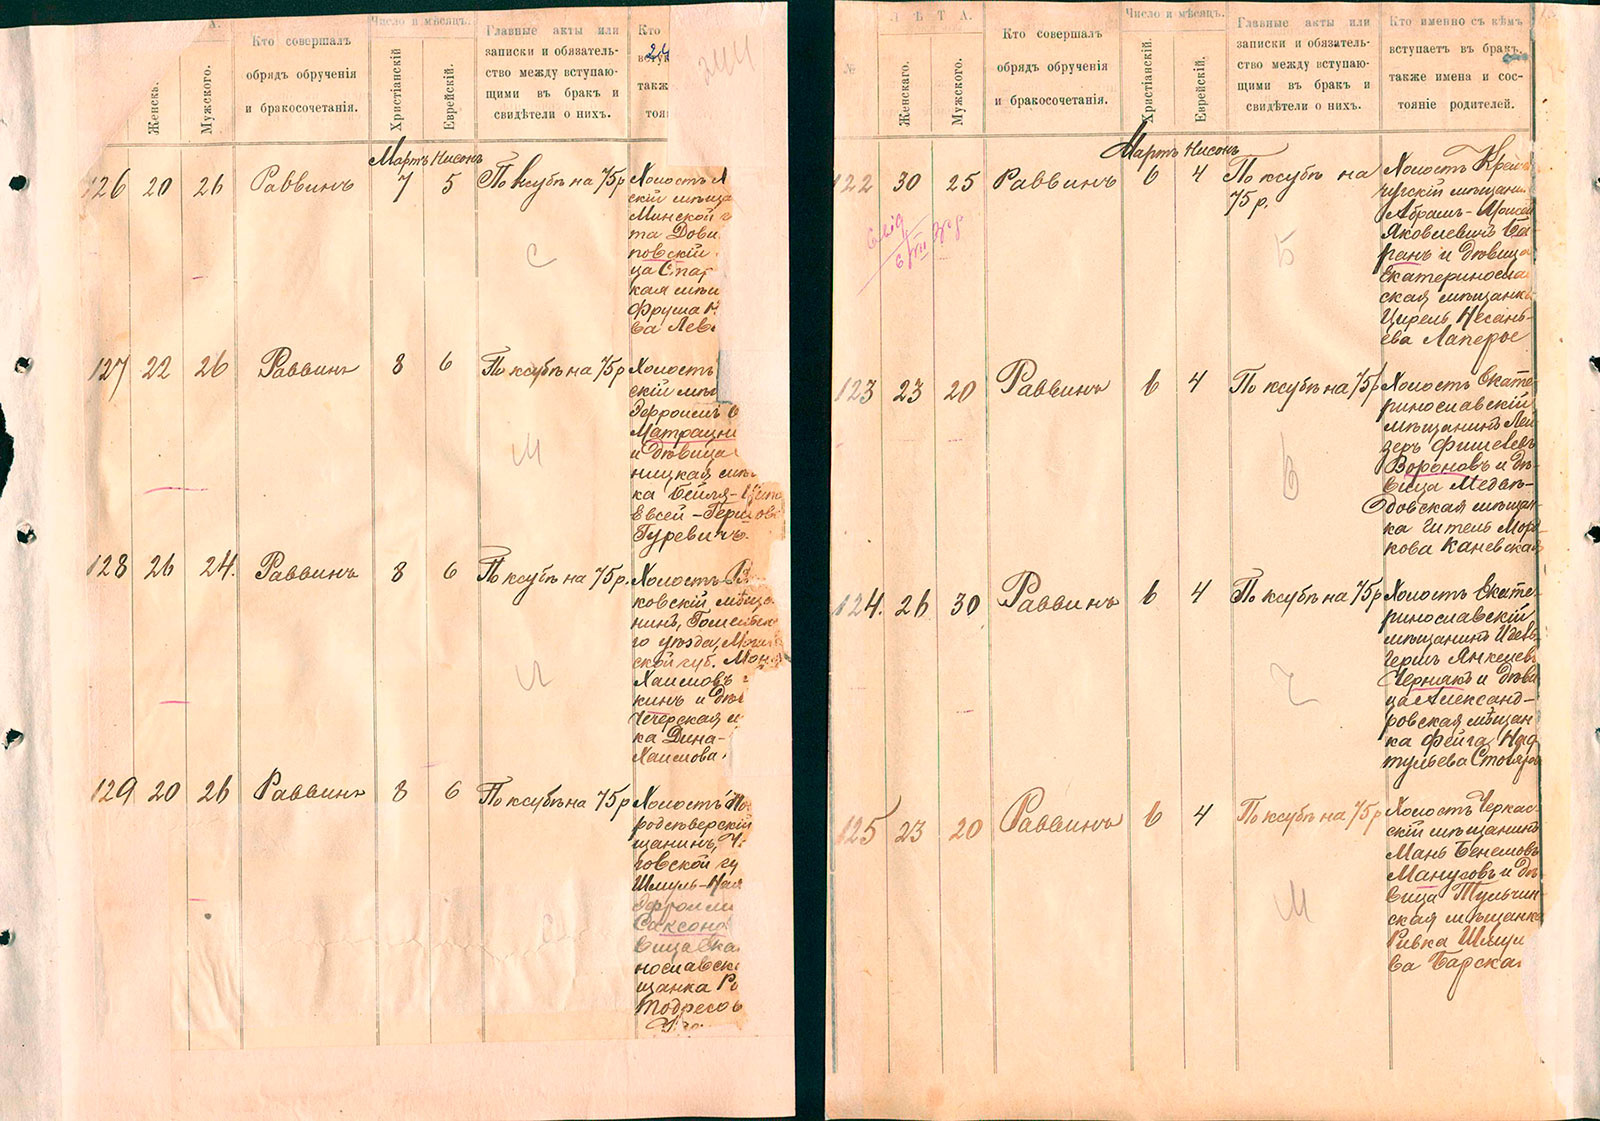 А.
Кто совершалъ
обрядъ обрученія
и бракосочетанія.
Число и мѣсяцъ.
Главные акты или
записки и обязатель-
ство между вступаю-
щими въ бракъ и
свидѣтели о нихъ.
Кто
24
такж
Женска.
Мужского.
Христіанскій
Еврейскій.
Мартъ Нисонъ
126 20 26 Раввинъ 7 5 По ксубѣ на 75 р
Холостъ
скій мѣща
Минской г
та Дови
повскій
ца Стар
кая мѣщ
Фрума
ва Лев
С
127 22 26 Раввинъ 8 6 По ксубѣ на 75 р
Холостъ
скій мѣщ
Эфроимъ
Матрацни
и дѣвица
ницкая мѣщ
ка Бейля-
Евсей-Гершов
Гуревичъ.
М
128 26 24. Раввинъ 8 6 По ксубѣ на 75 р.
Холостъ
ковскій мѣща
нинъ, Гомельска
го уѣзда, Могил
ской губ.
Хаимовъ
кинъ и дѣв
Чечерская м
ка Дина-
Хаимова
129 20 26 Раввинъ 8 6 По ксубѣ на 75 р
Холостъ Но
родсѣверскій
щанинъ, Ч
говской гу
Шмуль-
Эфроим
Саксон
вица Ека
нославск
щанка
Тодресов
С
Л Ѣ Т А.
Кто совершалъ
обрядъ обрученія
и бракосочетанія.
Число и мѣсяцъ.
Главные акты или
записки и обязатель-
ство между вступаю-
щими въ бракъ и
свидѣтели о нихъ.
Кто именно съ кѣмъ
вступаетъ въ бракъ,
также имена и сос-
тояніе родителей.
№
Женскаго.
Мужского.
Христіанскій.
Еврейскій.
Мартъ Нисонъ
122 30 25 Раввинъ 6 4 По ксубѣ на
75 р.
Холостъ Кремен
чугскій мѣщани
Абрамъ-Мойсей
Яковлевичъ Ба
ранъ и дѣвица
Екатеринослав
ская мѣщанка
Цирель Несань-
ева Лаперос
Б
123 23 20 Раввинъ 6 4 По ксубѣ на 75 р
Холостъ Екате
ринославскій
мѣщанинъ Лей
зеръ Фишелевъ
Вороновъ и дѣ-
вица Медвѣ-
довская мѣщан
ка Гитель Морд
кова Каневская
В
124. 26 30 Раввинъ 6 4 По ксубѣ на 75 р
Холостъ Екате
ринославскій
мѣщанинъ
Гершъ Янкелев
Чернякъ и дѣви
ца Александ-
ровская мѣщан
ка Фейга
Столяр
Ч
125 23 20 Раввинъ 6 4 По ксубѣ на 75 р
Холостъ Черкас
скій мѣщанинъ
Мань Бенемовъ
Манусовъ и дѣ
вица Тульчин
ская мѣщанка
Ривка Шмуле
ва Барская
М